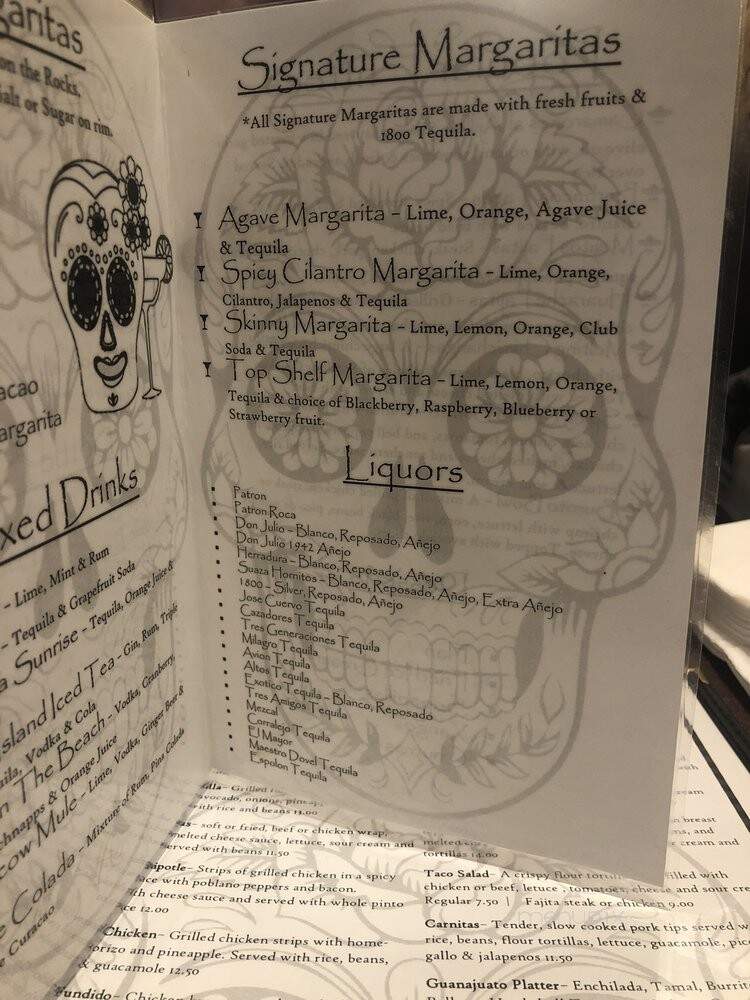 Margaritas
on the Rocks,
Salt or Sugar on rim.
Margarita
Mixed Drinks
- Lime, Mint & Rum
- Tequila & Grapefruit Soda
Sunrise - Tequila, Orange Juice &
Island Iced Tea - Gin, Rum, Triple
Vodka & Cola
The Beach - Vodka, Cranberry,
Schnapps & Orange Juice
Mule - Lime, Vodka, Ginger Beer &
Colada - Mixture of Rum, Pina Colada
Curacao
Signature Margaritas
*All Signature Margaritas are made with fresh fruits &
1800 Tequila.
Agave Margarita - Lime, Orange, Agave Juice
& Tequila
Spicy Cilantro Margarita - Lime, Orange,
Cilantro, Jalapenos & Tequila
Skinny Margarita - Lime, Lemon, Orange, Club
Soda & Tequila
Top Shelf Margarita - Lime, Lemon, Orange,
Tequila & choice of Blackberry, Raspberry, Blueberry or
Strawberry fruit.
Liquors
Patron
Patron Roca
Don Julio - Blanco, Reposado, Añejo
Don Julio 1942 Añejo
Herradura - Blanco, Reposado, Añejo
Suaza Hornitos - Blanco, Reposado, Añejo, Extra Añejo
1800 - Silver, Reposado, Añejo
Jose Cuervo Tequila
Cazadores Tequila
Tres Generaciones Tequila
Milagro Tequila
Avion Tequila
Altos Tequila
Exotico Tequila - Blanco, Reposado
Tres Amigos Tequila
Mezcal
Corralejo Tequila
El Mayor
Maestro Dovel Tequila
Espolon Tequila
- Grilled
avocado, onions,
with rice and beans 13.00
- soft or fried, beef or chicken wrap,
melted cheese sauce, lettuce, sour cream and
served with beans 11.50
Chipotle- Strips of grilled chicken in a spicy
with poblano peppers and bacon.
cheese sauce and served with whole pinto
12.00
Chicken- Grilled chicken strips with home-
and pineapple. Served with rice, beans,
& guacamole 12.50
Fundido- Chicken
with
cream
breast
and
cream and
tortillas 14.00
Taco Salad- A crispy flour filled with
chicken or beef, letuce, tomatoes, cheese and sour
Regular 7.50 | Fajita steak or chicken 9.00
Carnitas- Tender, slow cooked pork tips served
rice, beans, flour tortillas, lettuce, guacamole,
gallo & jalapenos 11.50
Guanajuato Platter- Enchilada, Tamal,